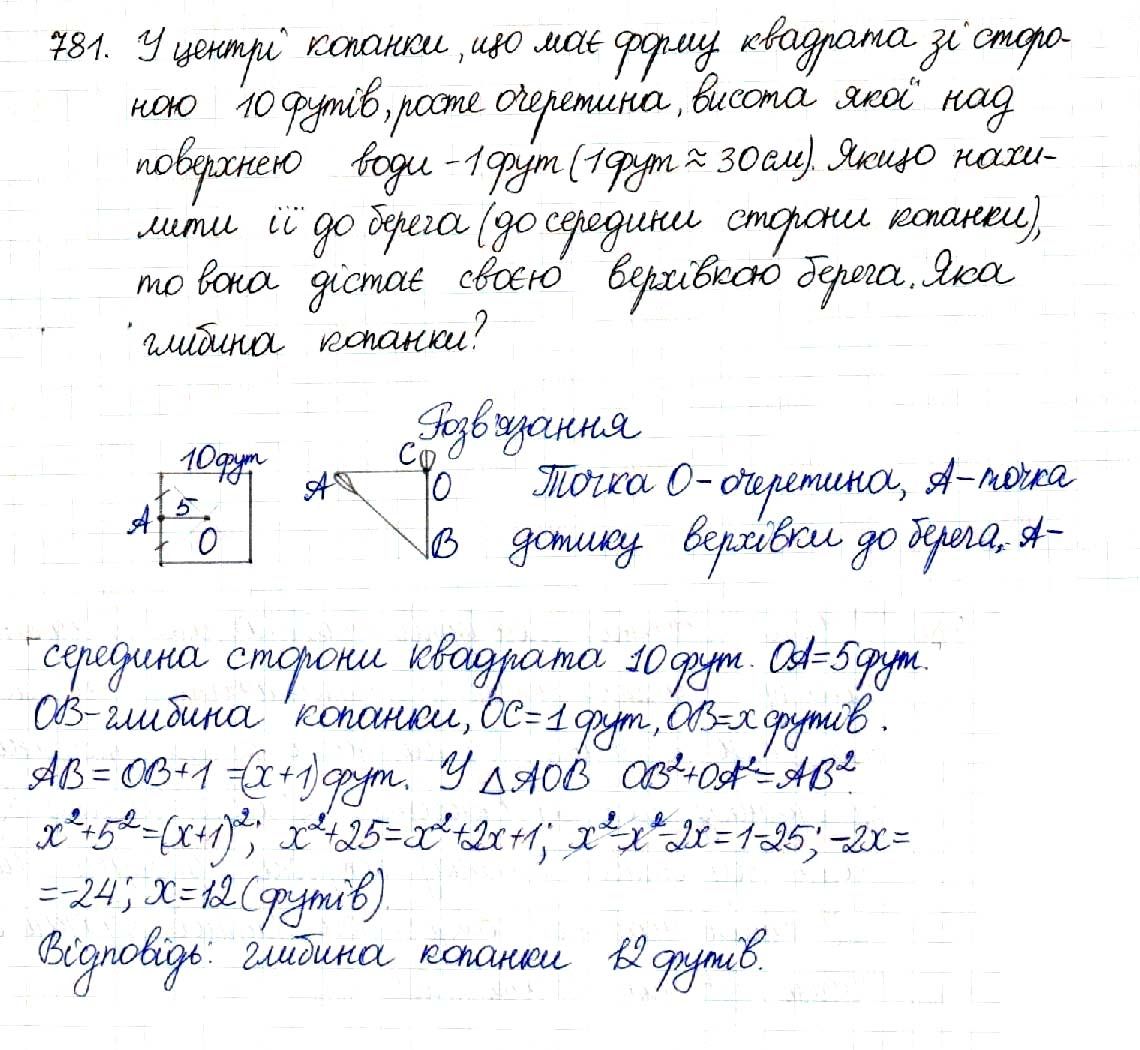 781. У центрі копанки, що має форму квадрата зі сторо-
ною 10 футів, росте очеретина, висота якої над
поверхнею води - 1 фут (1 фут ≈ 30 см). Якщо нахи-
лити її до берега (до середини сторони копанки),
то вона дістає своєю верхівкою берега. Яка
глибина копанки?
Розв'язання
10 фут
A 5 O
A C O B
Точка O - очеретина, A - точка
дотику верхівки до берега, A -
середина сторони квадрата 10 фут. OA = 5 фут.
OB - глибина копанки, OC = 1 фут, OB = x футів.
AB = OB + 1 = (x+1) фут. У △AOB OB² + OA² = AB².
x² + 5² = (x+1)²; x² + 25 = x² + 2x + 1; x² - x² - 2x = 1 - 25; -2x =
= -24; x = 12 (футів)
Відповідь: глибина копанки 12 футів.